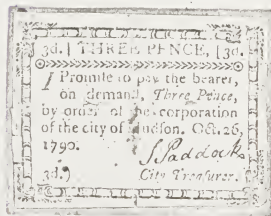 3d. | THREE PENCE, [3d.
I Promise to pay the bearer,
on demand, Three Pence,
by order of the corporation
of the city of Hudson. Oct. 26,
1790.
S Paddock
3d. City Treasurer.